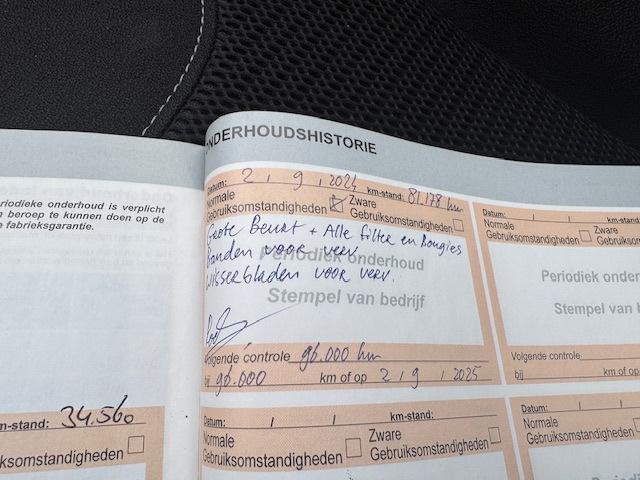 riodieke onderhoud is verplicht
n beroep te kunnen doen op de
fabrieksgarantie.
m-stand: 34.560
ksomstandigheden
ONDERHOUDSHISTORIE
Datum: 2 / 9 / 2024 km-stand: 81.178 km
Normale Gebruiksomstandigheden
Zware Gebruiksomstandigheden
Grote Beurt + Alle filter en Bougies
Banden voor verv.
Wisserbladen voor verv.
Periodiek onderhoud
Stempel van bedrijf
Volgende controle 96.000 km
bij 96.000 km of op 2 / 9 / 2025
Datum: / / km-stand:
Normale
Gebruiksomstandigheden
Zware
Gebruiksomstandigheden
Datum: / /
Normale
Gebruiksomstandigheden
Zware
Gebruiksoms
Periodiek onde
Stempel van b
Volgende controle
bij km of o
Datum:
Normale
Gebruiksomstandighede